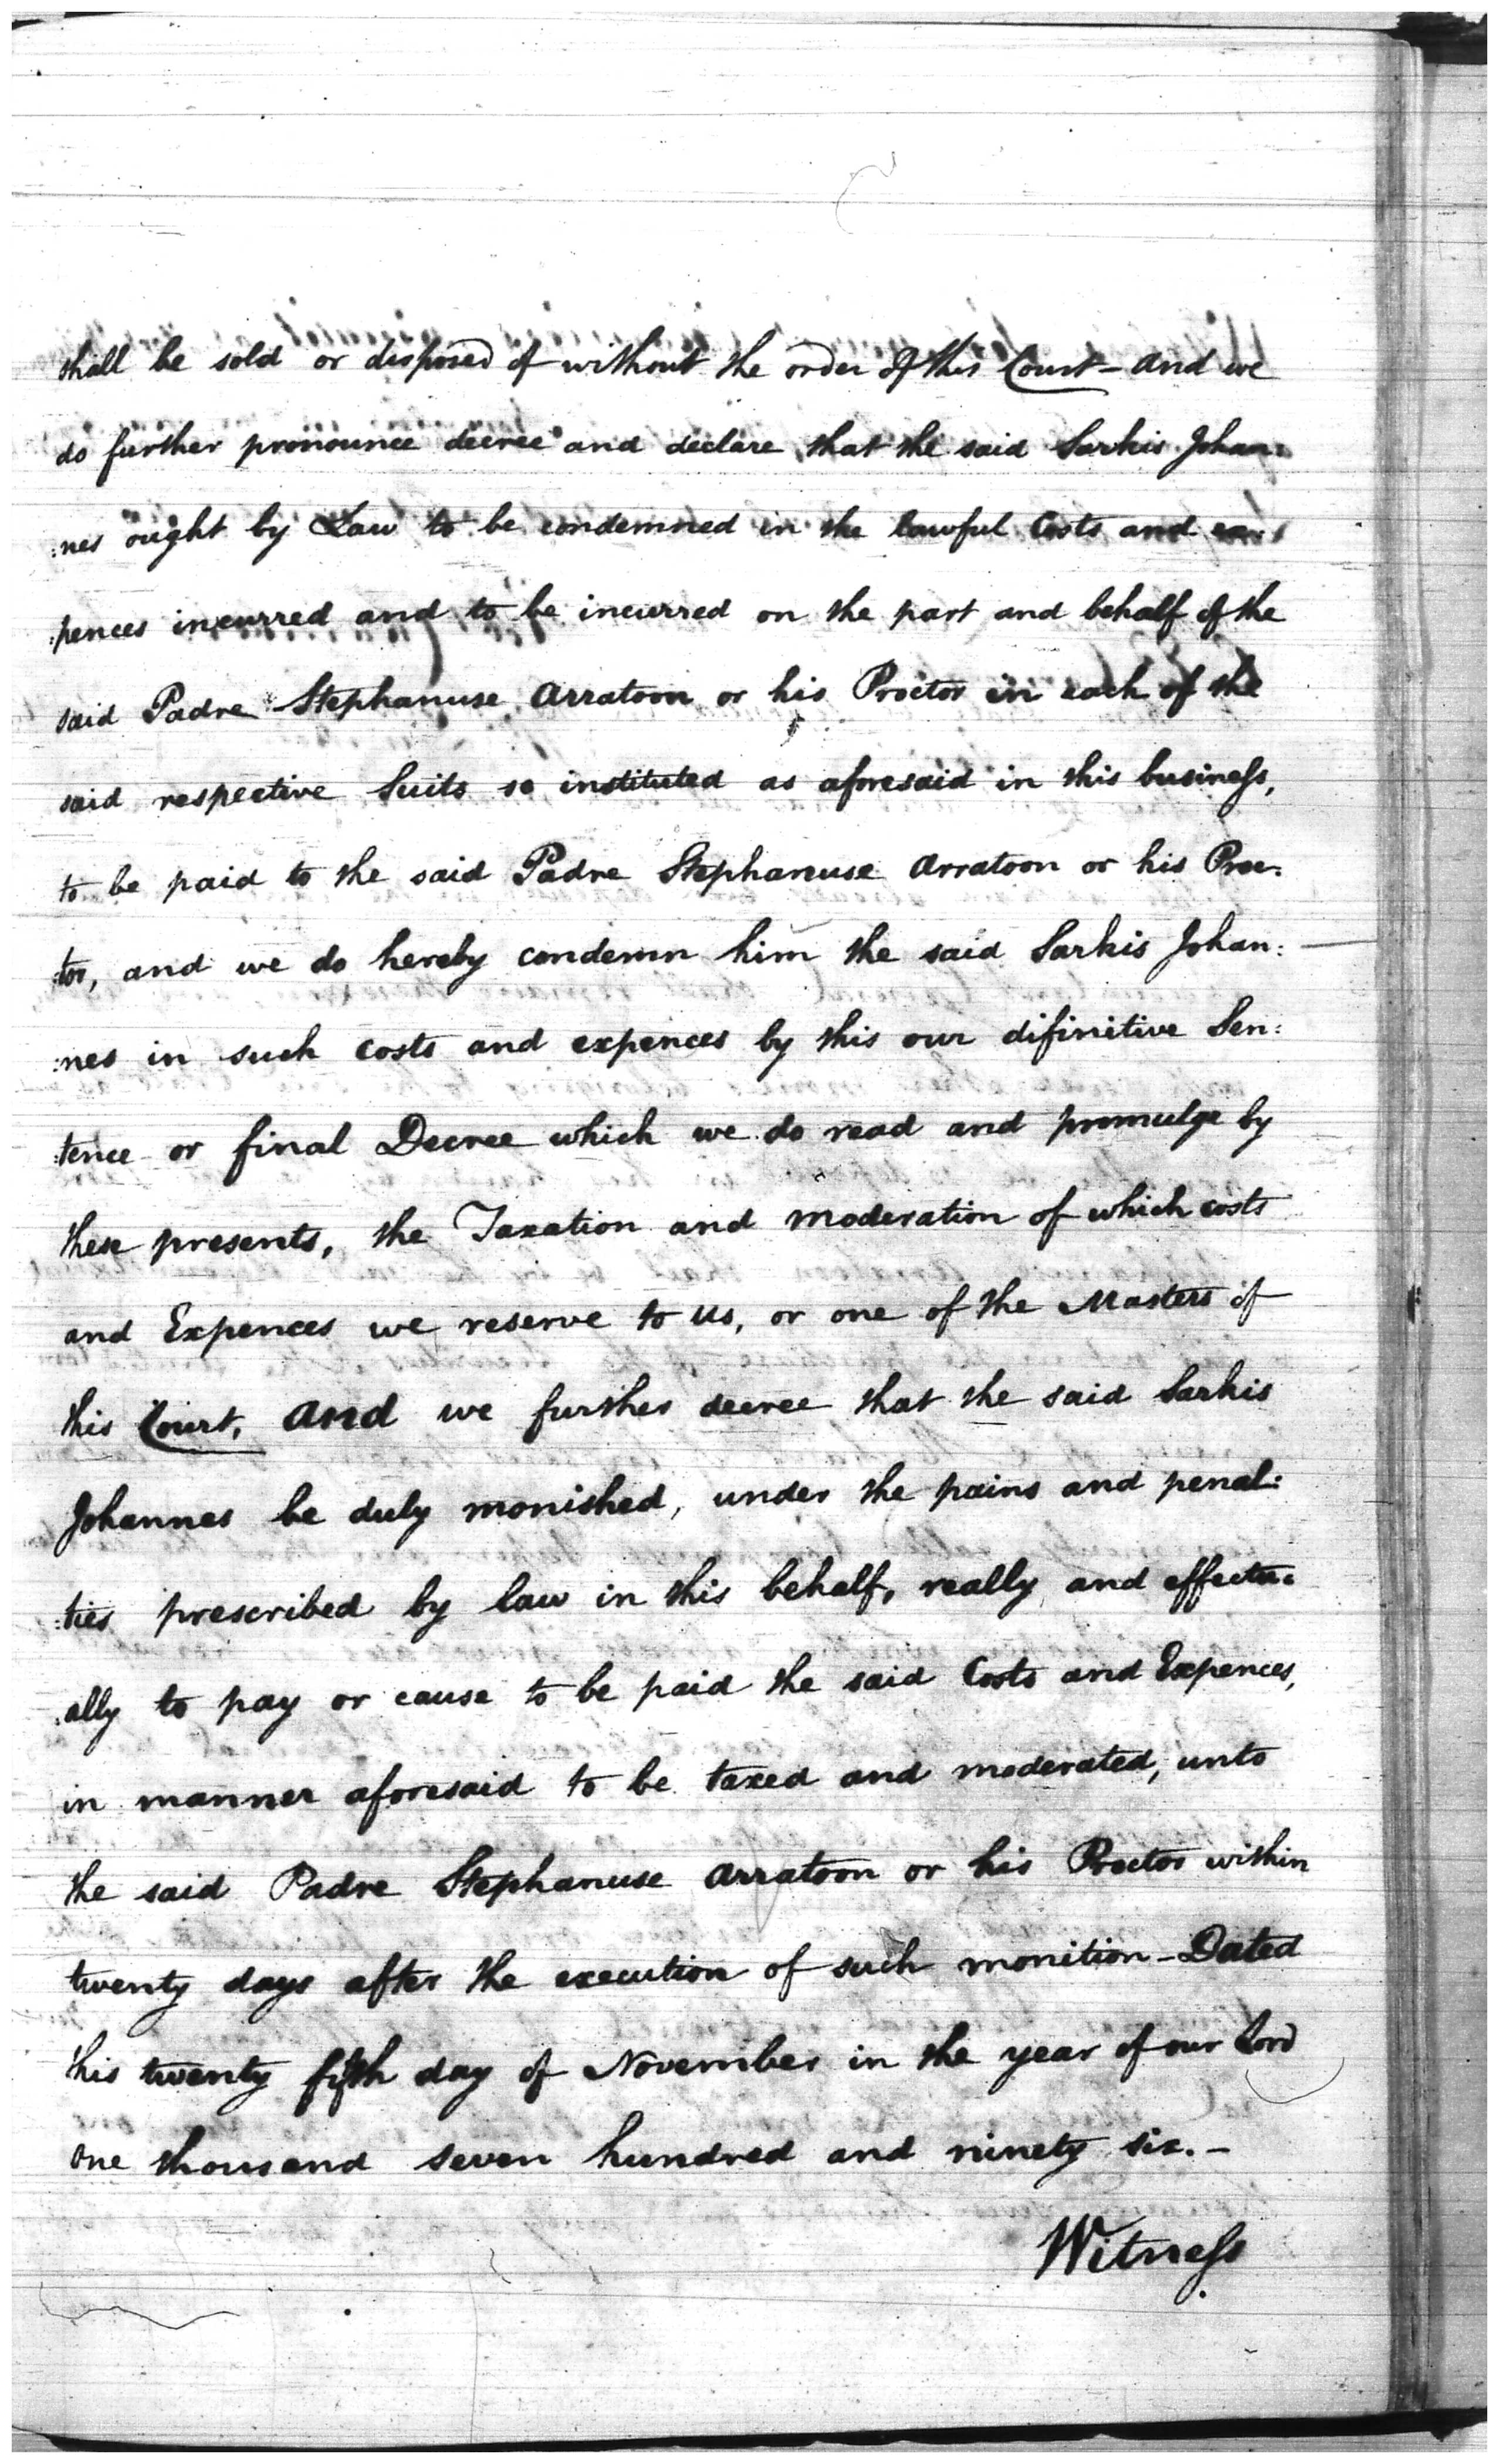 shall be sold or disposed of without the order of this Court – and we
do further pronounce decree and declare that the said Sarkis Johan:
:nes ought by Law to be condemned in the lawful Costs and ex:
:pences incurred and to be incurred on the part and behalf of the
said Padre Stephanuse Arratoon or his Proctor in each of the
said respective Suits so instituted as aforesaid in this businefs,
to be paid to the said Padre Stephanuse Arratoon or his Proc:
:tor, and we do hereby condemn him the said Sarkis Johan:
:nes in such costs and expences by this our difinitive Sen:
:tence or final Decree which we do read and promulge by
these presents, the Taxation and moderation of which costs
and Expences we reserve to us, or one of the Masters of
this Court, and we further decree that the said Sarkis
Johannes be duly monished, under the pains and penal:
:ties prescribed by law in this behalf, really and effectu:
:ally to pay or cause to be paid the said Costs and Expences,
in manner aforesaid to be taxed and moderated, unto
the said Padre Stephanuse Arratoon or his Proctor within
twenty days after the execution of such monition – Dated
this twenty fifth day of November in the year of our Lord
one thousand seven hundred and ninety six. –
Witnefs